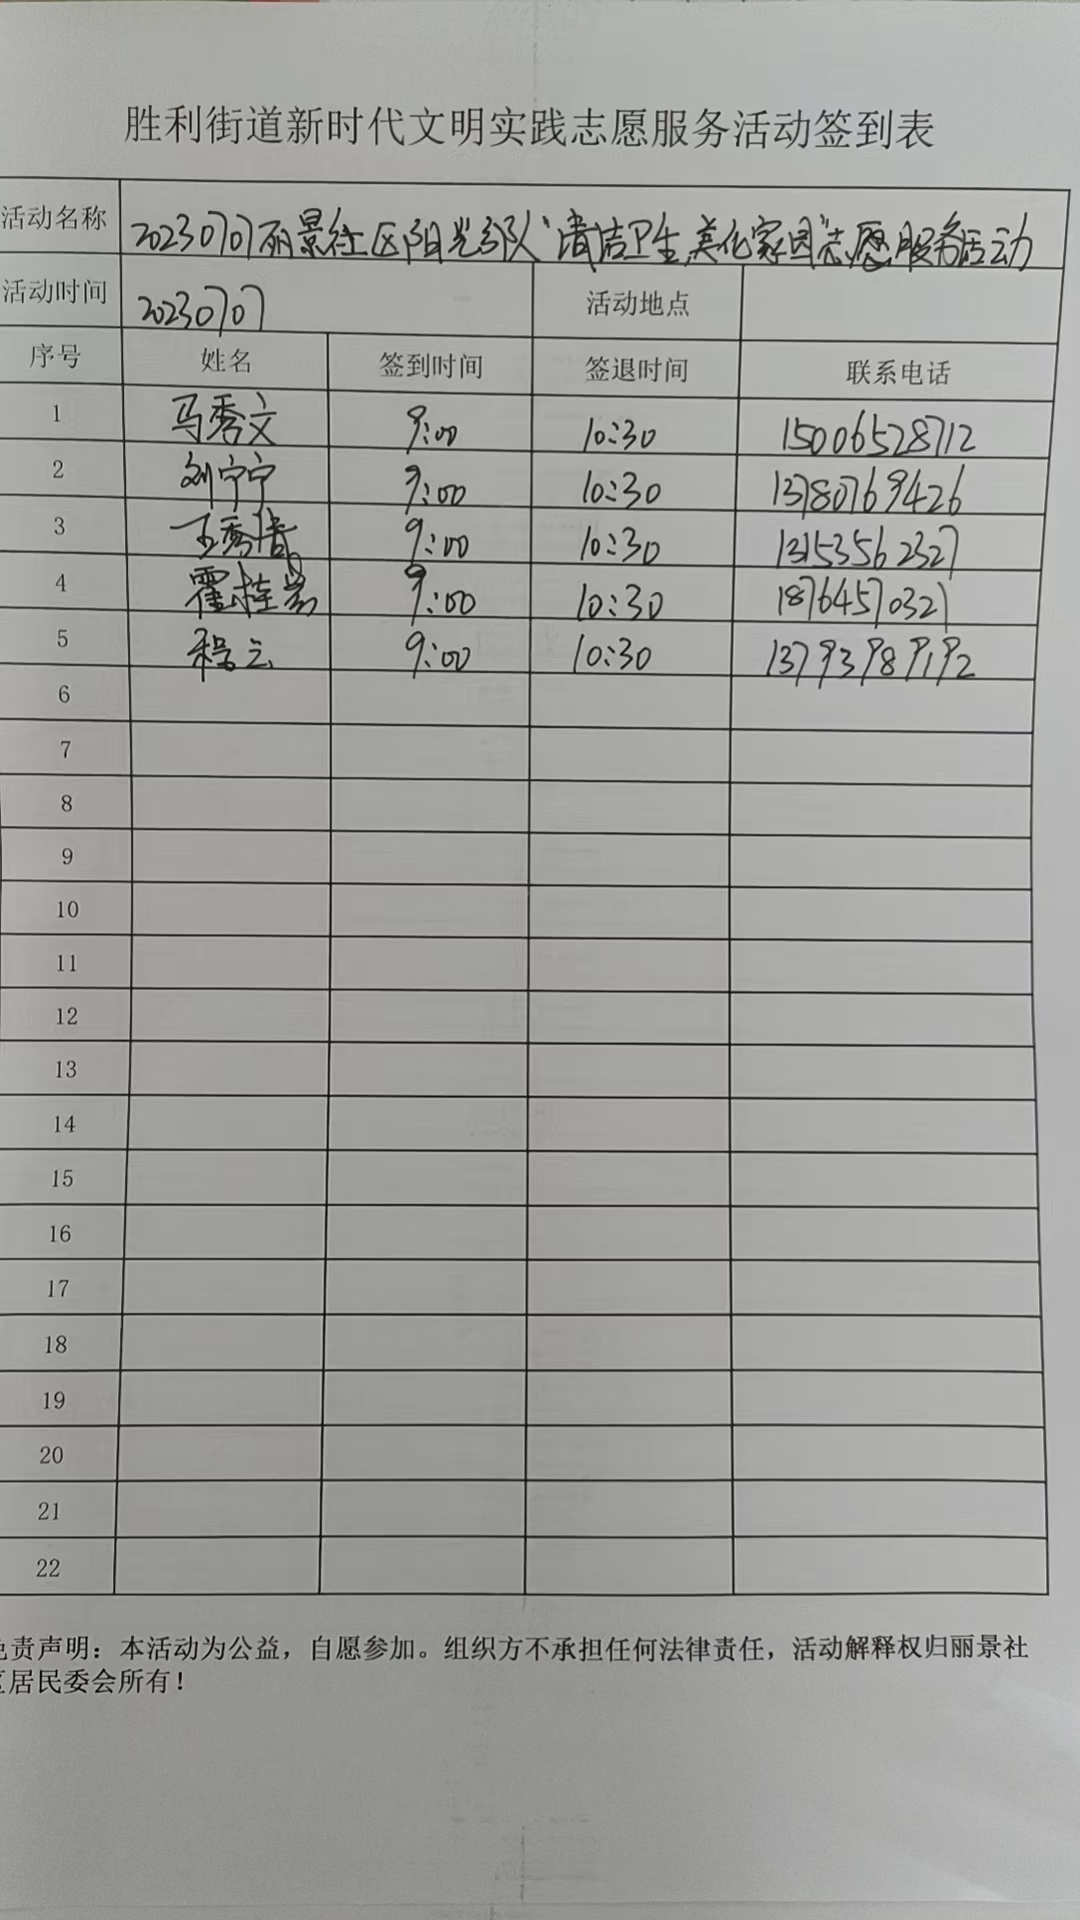 胜利街道新时代文明实践志愿服务活动签到表
活动名称 20230707丽景社区阳光部队“清洁卫生,美化家园”志愿服务活动
活动时间 20230707 活动地点
序号 姓名 签到时间 签退时间 联系电话
1 马秀文 9:00 10:30 15006528712
2 刘宁宁 9:00 10:30 13780769426
3 王秀清 9:00 10:30 13153562327
4 霍桂岩 9:00 10:30 18764570327
5 程云 9:00 10:30 13793989192
6
7
8
9
10
11
12
13
14
15
16
17
18
19
20
21
22
免责声明：本活动为公益，自愿参加。组织方不承担任何法律责任，活动解释权归丽景社
区居民委会所有！